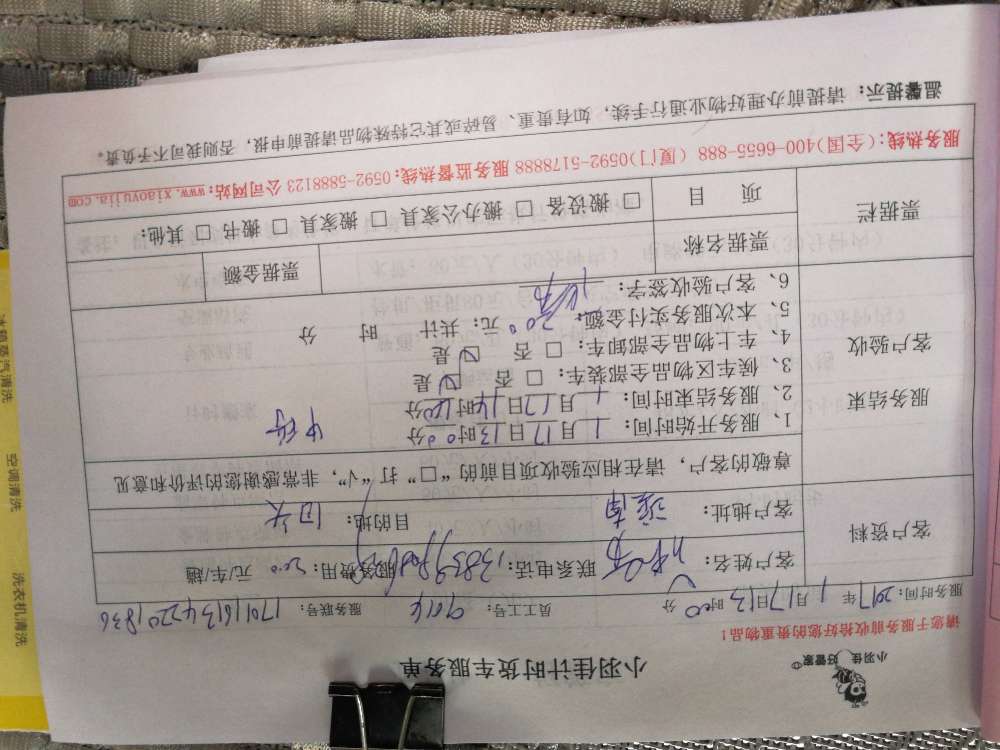 小羽佳 好管家
小羽佳计时货车服务单
请您于服务前收拾好您的贵重物品！
服务时间：2017年1月17日13时00分 员工工号：9016 服务联号：170161342201836
客户资料
客户姓名： 联系电话： 服务费用：200 元/车/趟
客户地址：莲南 目的地：
尊敬的客户，请在相应验收项目前的“□”打“√”，非常感谢您的评价和意见
服务结束
客户验收
1、服务开始时间：1月17日13时00分
2、服务结束时间：1月17日14时00分
3、候车区物品全部装车：□否 ☑是
4、车上物品全部卸车：□否 ☑是
5、本次服务实付金额：200元；共计 时 分
6、客户验收签字：
票据栏
票据名称 票据金额
项 目 □搬设备 □搬办公家具 □搬家具 □搬书 □其他：
服务热线：(全国)400-6655-888 (厦门)0592-5178888 服务监督热线：0592-5888123 公司网站：www.xiaoyujia.com
温馨提示：请提前办理好物业通行手续，如有贵重、易碎或其它特殊物品请提前申报，否则我司不予负责。
洗衣机清洗
空调清洗
冰箱蒸汽清洗